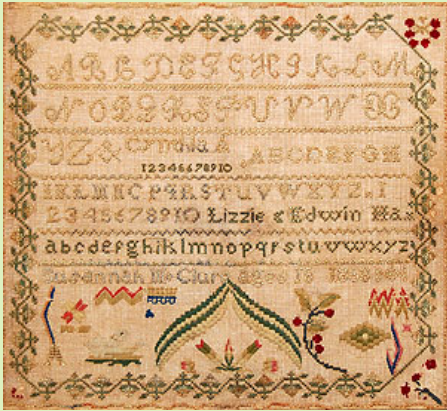 A B C D E F G H I K L M
N O P Q R S T U V W X
Y Z & Cynthia A
1 2 3 4 5 6 7 8 9 10 A B C D E F G H
I K L M N C P Q R S T U V W X Y Z . 1
2 3 4 5 6 7 8 9 10 Lizzie & Edwin
a b c d e f g h i k l m n o p q r s t u v w x y z
Susannah Mc Clure aged 18